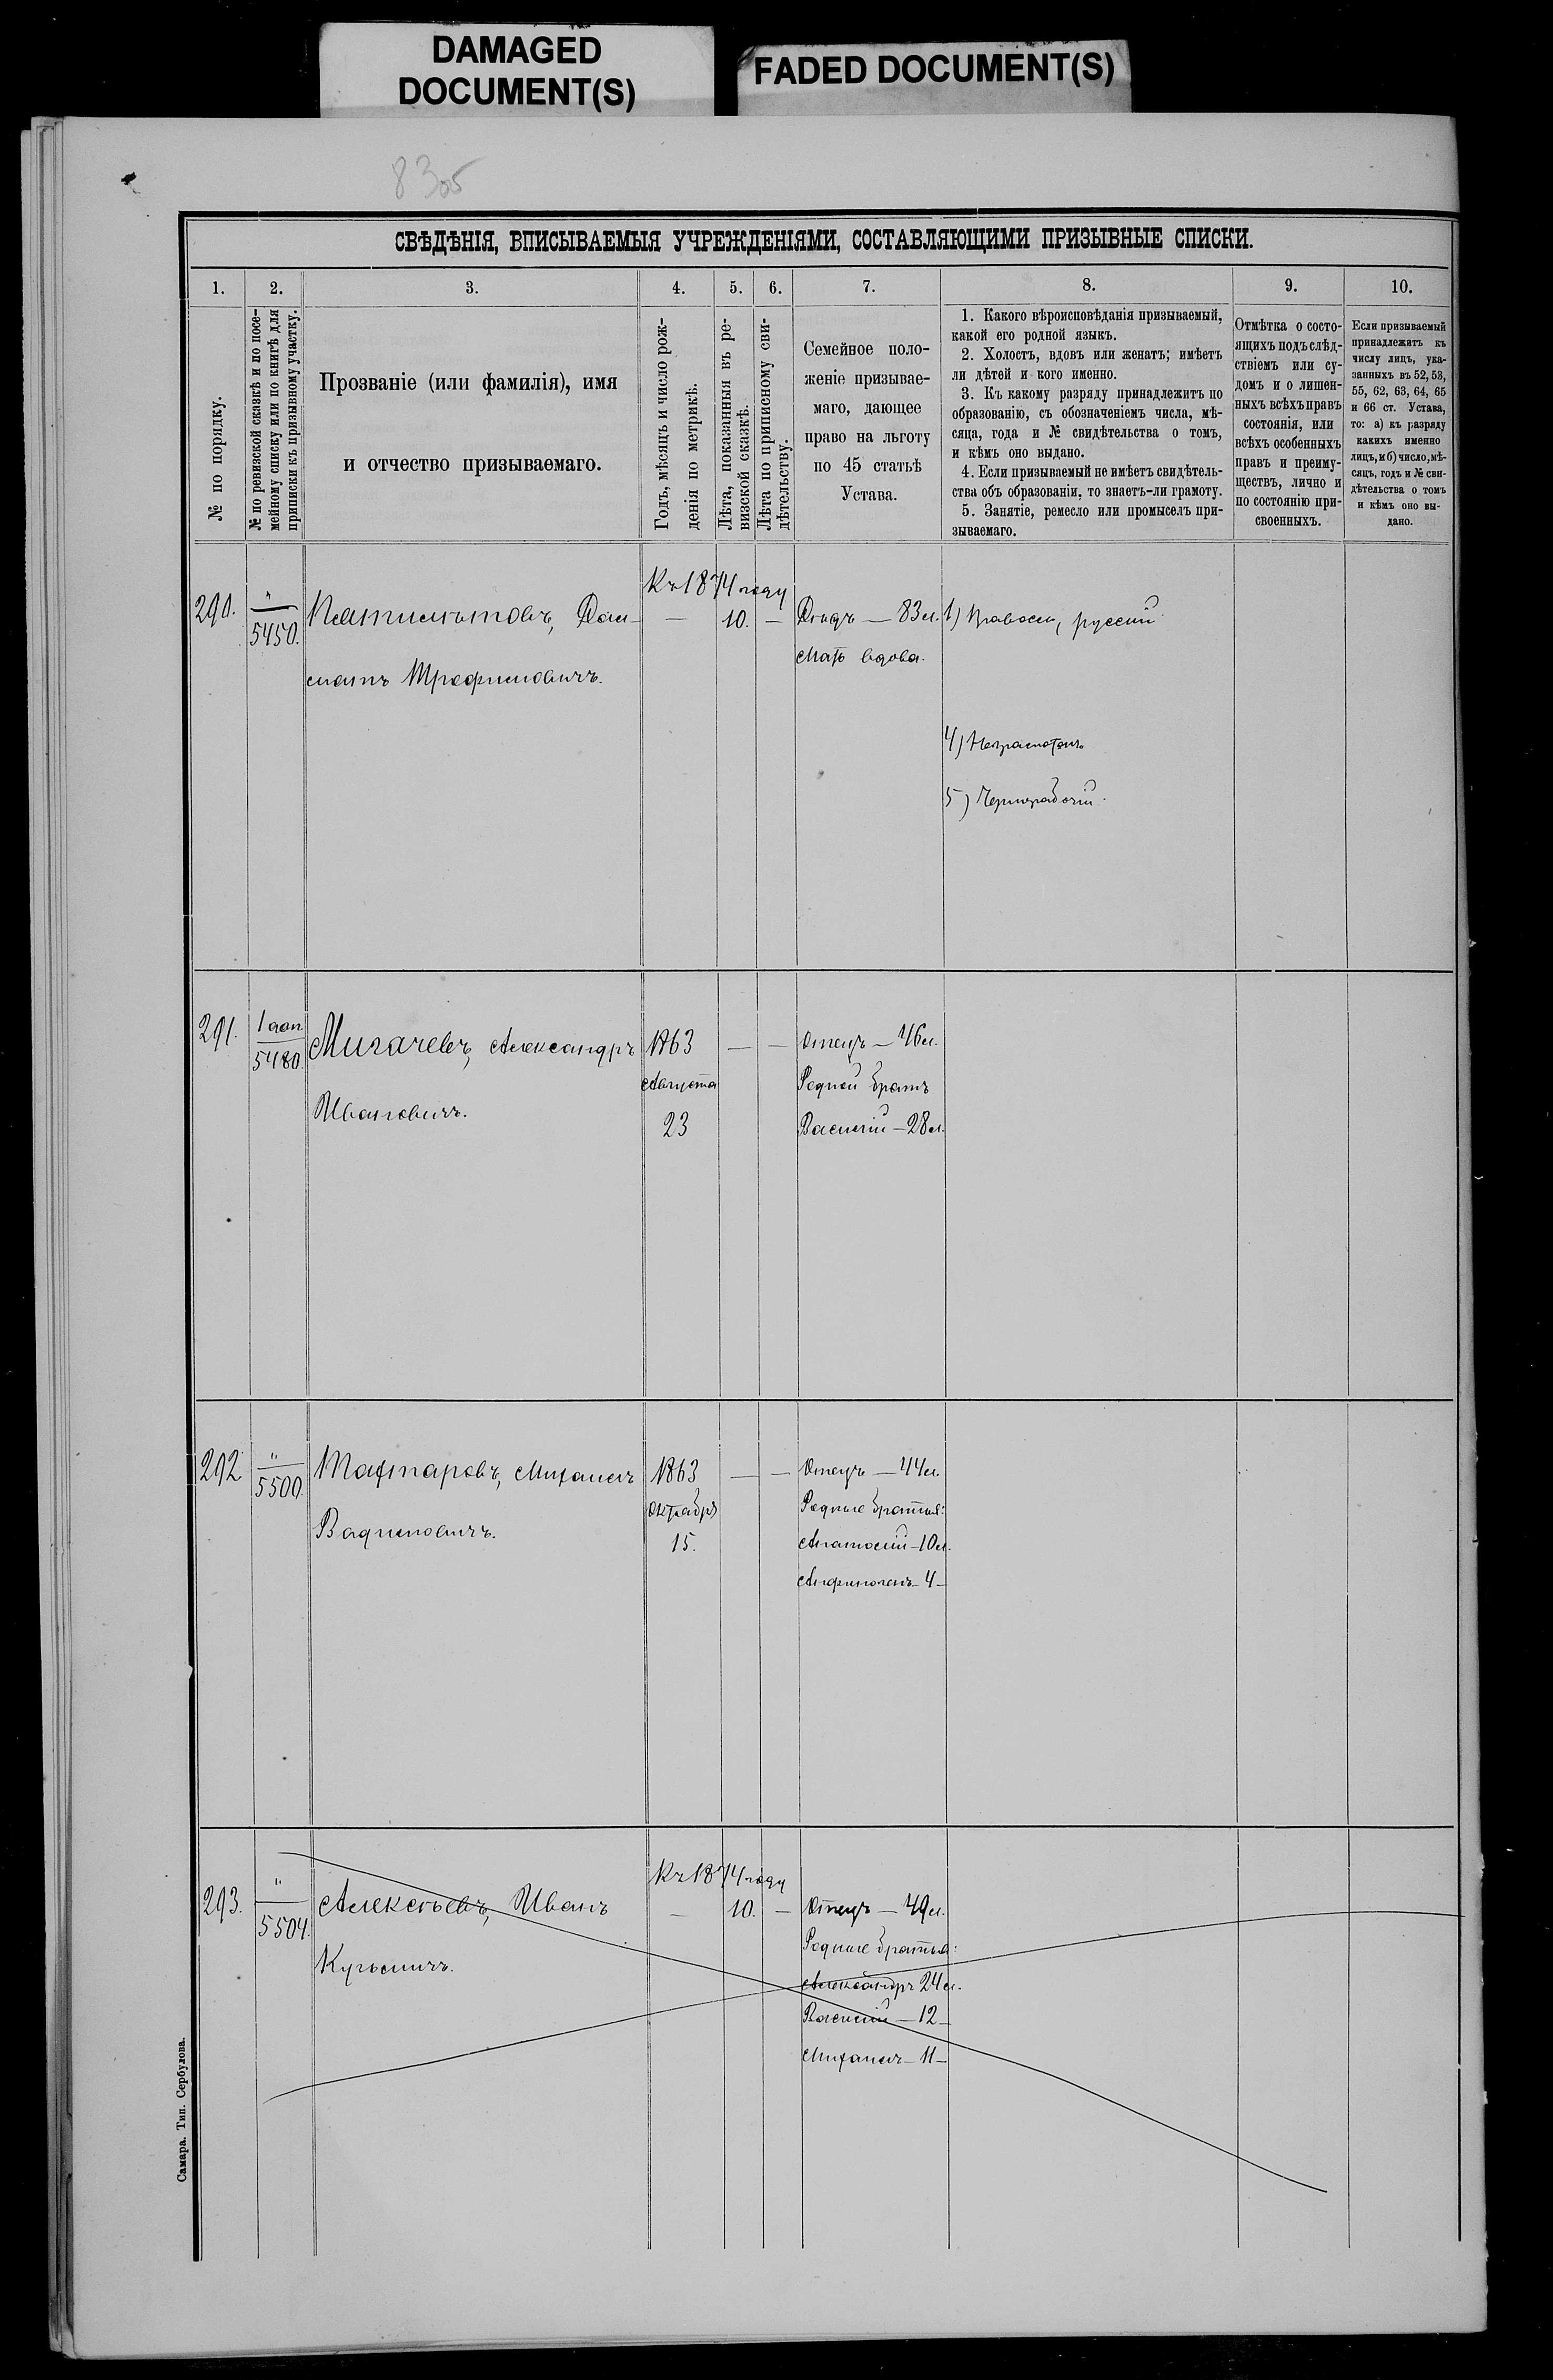 DAMAGED
DOCUMENT(S)
FADED DOCUMENT(S)
8305
СВѢДѢНІЯ, ВПИСЫВАЕМЫЯ УЧРЕЖДЕНІЯМИ, СОСТАВЛЯЮЩИМИ ПРИЗЫВНЫЕ СПИСКИ.
1.
2.
3.
4.
5.
6.
7.
8.
9.
10.
№ по порядку.
№ по ревизской сказкѣ и по посе-
мейному списку или по книгѣ для
приписки къ призывному участку.
Прозваніе (или фамилія), имя
и отчество призываемаго.
Годъ, мѣсяцъ и число рож-
денія по метрикѣ.
Лѣта, показанныя въ ре-
визской сказкѣ.
Лѣта по приписному сви-
дѣтельству.
Семейное поло-
женіе призывае-
маго, дающее
право на льготу
по 45 статьѣ
Устава.
1. Какого вѣроисповѣданія призываемый,
какой его родной языкъ.
2. Холостъ, вдовъ или женатъ; имѣетъ
ли дѣтей и кого именно.
3. Къ какому разряду принадлежитъ по
образованію, съ обозначеніемъ числа, мѣ-
сяца, года и № свидѣтельства о томъ,
и кѣмъ оно выдано.
4. Если призываемый не имѣетъ свидѣтель-
ства объ образованіи, то знаетъ-ли грамоту.
5. Занятіе, ремесло или промыселъ при-
зываемаго.
Отмѣтка о состо-
ящихъ подъ слѣд-
ствіемъ или су-
домъ и о лишен-
ныхъ всѣхъ правъ
состоянія, или
всѣхъ особенныхъ
правъ и преиму-
ществъ, лично и
по состоянію при-
своенныхъ.
Если призываемый
принадлежитъ къ
числу лицъ, ука-
занныхъ въ 52, 53,
55, 62, 63, 64, 65
и 66 ст. Устава,
то: а) къ разряду
какихъ именно
лицъ, и б) число, мѣ-
сяцъ, годъ и № сви-
дѣтельства о томъ
и кѣмъ оно вы-
дано.
290.
"
5450.
Дал-
матъ Трофимовичъ.
Къ 1874 году
— 10. —
Дѣдъ — 83 л.
Мать вдова.
1) Правосл, русскій
4) Неграмотенъ
5) Чернорабочій.
291.
1 доп.
5480.
Мигачевъ, Александръ
Ивановичъ.
1863
Августа
23
— —
Отецъ — 46 л.
Родной братъ
Василій — 28 л.
292
"
5500.
Тафтаровъ, Михаилъ
Вадимовичъ.
1863
Октября
15.
— —
Отецъ — 44 л.
Родные братья:
— 10 л.
— 4 —
293.
"
5504.
Алексѣевъ, Иванъ
Кузьмичъ.
Къ 1874 году
— 10. —
Отецъ — 49 л.
Родные братья:
Александръ 24 л.
Василій — 12 —
Михаилъ — 11 —
Самара. Тип. Сербулова.